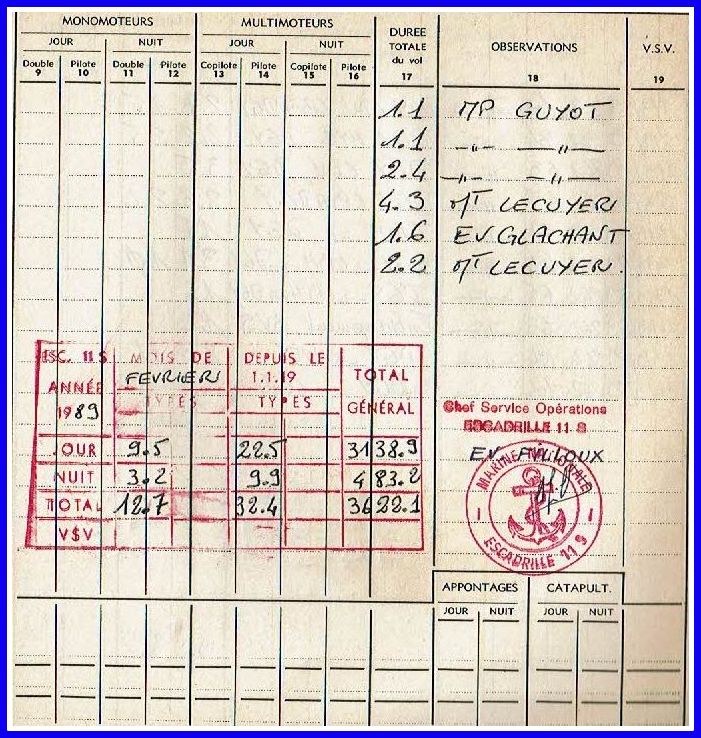 MONOMOTEURS MULTIMOTEURS DUREE TOTALE du vol OBSERVATIONS V.S.V.
JOUR NUIT JOUR NUIT
Double Pilote Double Pilote Copilote Pilote Copilote Pilote
9 10 11 12 13 14 15 16 17 18 19
1.1 MP GUYOT
1.1 —"— —"—
2.4 —"— —"—
4.3 MT LECUYER
1.6 EV GLACHANT
2.2 MT LECUYER.
ESC. 11 S MOIS DE DEPUIS LE
FEVRIER 1.1.19 TOTAL
ANNÉE TYPES TYPES GÉNÉRAL
1989
JOUR 9.5 22.5 3138.9
NUIT 3.2 9.9 483.2
TOTAL 12.7 32.4 3622.1
V$V
Chef Service Opérations
ESCADRILLE 11 S
EV
MARINE NATIONALE
ESCADRILLE 11 S
APPONTAGES CATAPULT.
JOUR NUIT JOUR NUIT